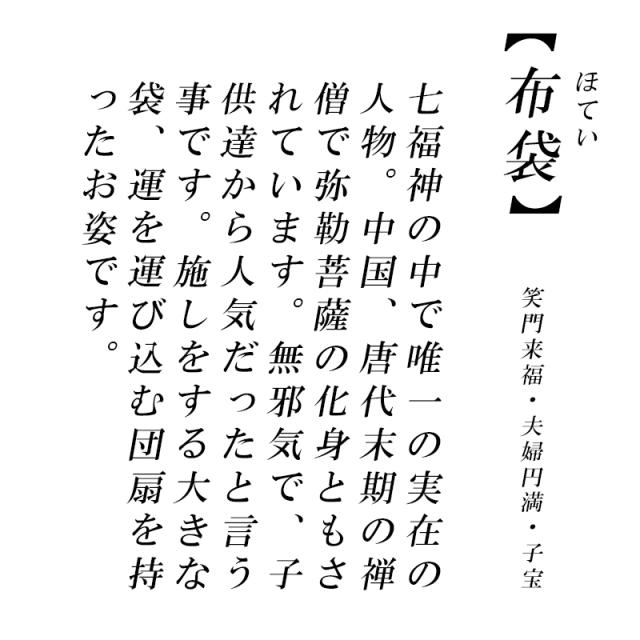 【布袋】
ほてい
笑門来福・夫婦円満・子宝
七福神の中で唯一の実在の
人物。中国、唐代末期の禅
僧で弥勒菩薩の化身ともさ
れています。無邪気で、子
供達から人気だったと言う
事です。施しをする大きな
袋、運を運び込む団扇を持
ったお姿です。